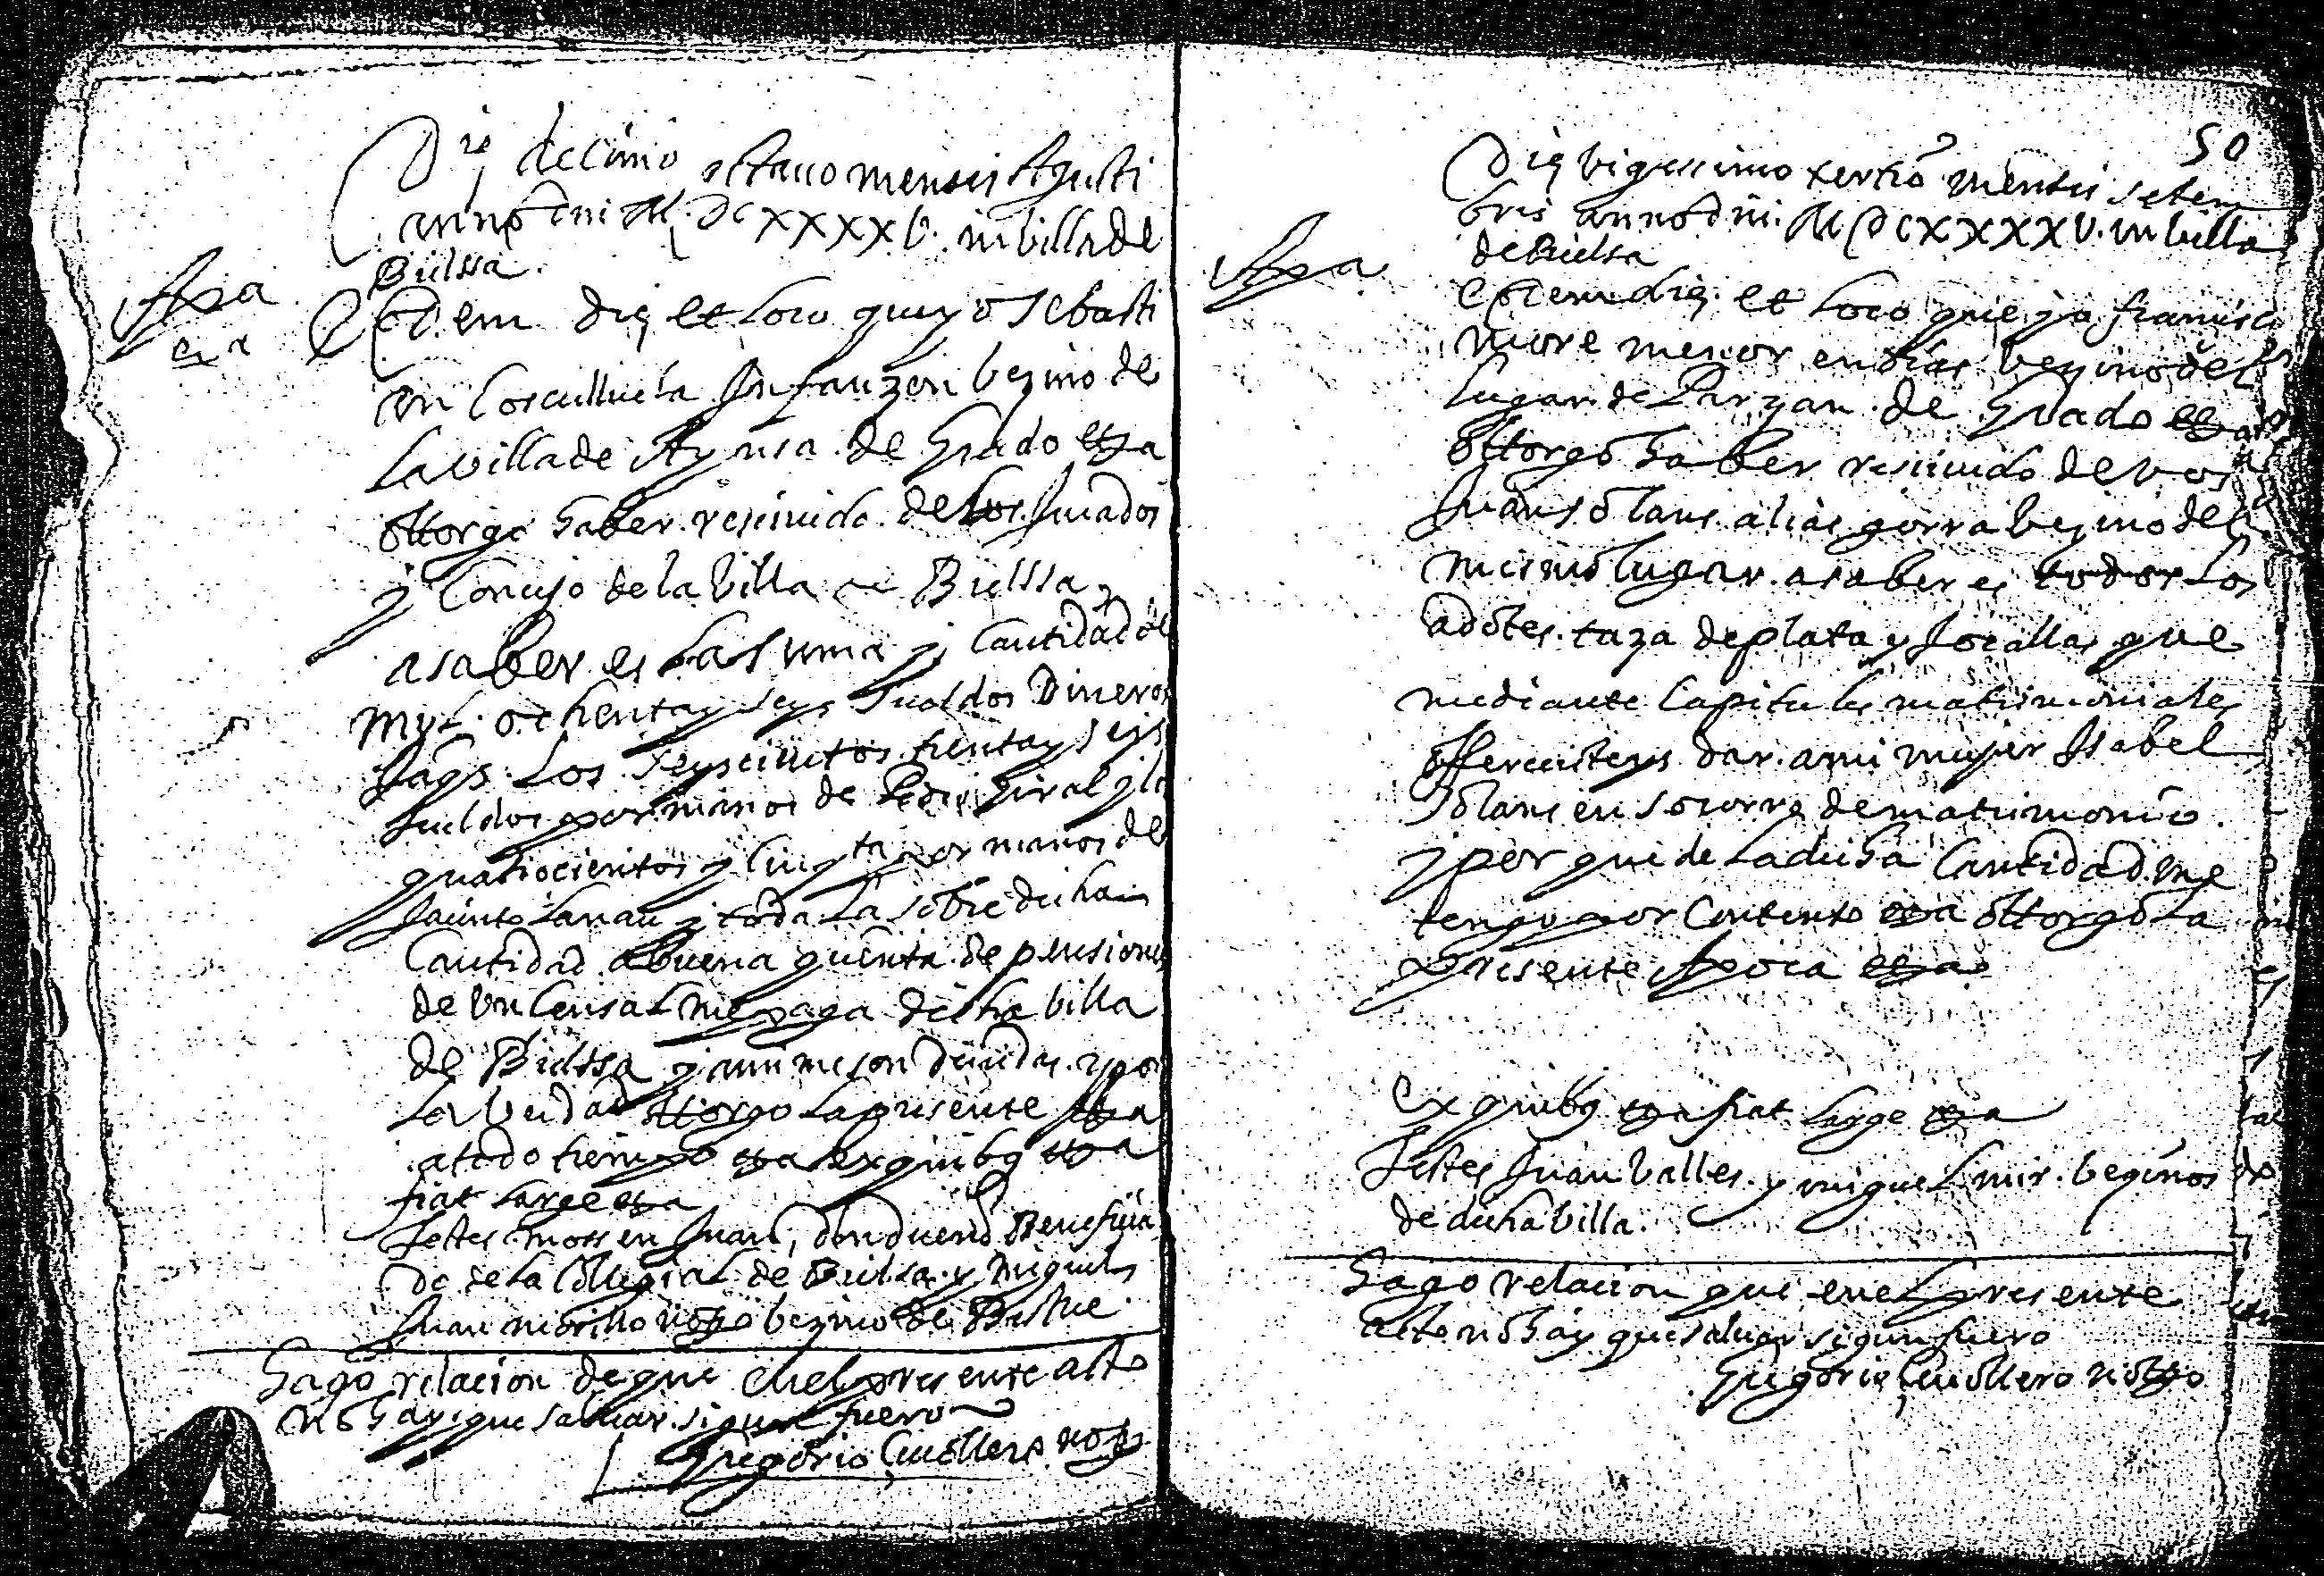 Die decimo octavo mensis Agusti
anno dni M. DCXXXXV. in billa de
Bielssa.
Apa
Eodem die et loco que yo Sebasti
an Cosculluela Infanzon bezino de
la villa de Aynsa de grado etza
ottorgo haber resciuido de los Jurados
y Concejo de la billa de Bielssa
asaber es la suma y Cantidad de
myl ochenta y seys sueldos Dineros
Jaqs. los seyscientos trenta y seys
sueldos por manos de Pedro Giral y los
quatrocientos y cinqta por manos de
Jacinto Lanau y toda la sobredicha
Cantidad abuena quenta de pensiones
de Un Censal me paga dicha billa
de Bielssa y a mi me son deuidas y por
la berdad ottorgo la presente etza
a todo tiempo etza ex quibq etza
fiat large etza
Testes mossen Juan, Beneficia
do de la Collegial de Bielsa y Miguel
Juan morillo notro bezino de
Hago relacion de que en el presente acto
no hay que saluar sigun fuero
Gregorio Cauollero not
50
Die bigessimo tertio mensis setem
bris anno dni. M DCXXXXV. in billa
de Bielsa
Apa
Eodem die et loco que yo francisco
more menor en dias bezino del
lugar de Parzan de grado etza
ottorgo haber resciuido de vos
Juan solans alias gorra bezino del
mismo lugar asaber es todos los
adotes taza de plata y Jocallas que
mediante Capitules matrimoniales
offrecisteys dar a mi mujer Isabel
Solans en socorro de matrimonio.
y por que de la dicha Cantidad me
tengo por Contento etza ottorgo la
presente Apoca etza
Ex quibq etza fiat large etza
Testes Juan Balles y miguel mir bezinos
de dicha billa.
Hago relacion que en el presente
acto no hay que saluar sigun fuero
Gregorio Cauollero notro